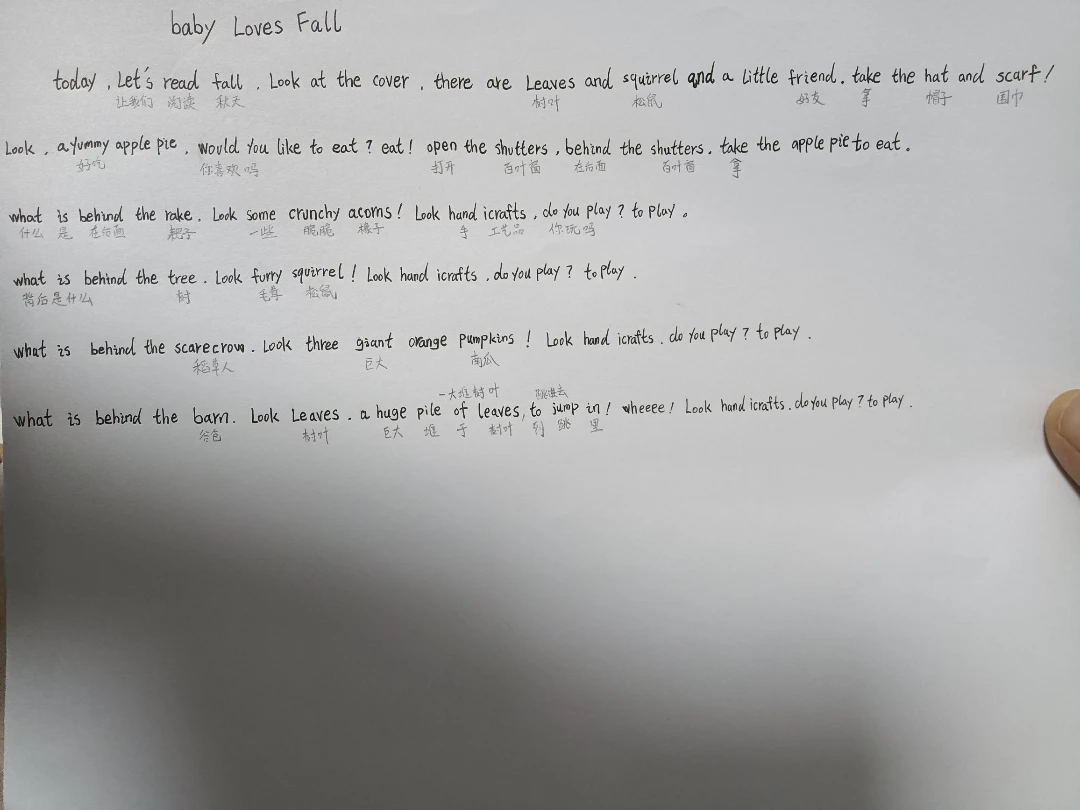 baby Loves Fall
today , Let's read fall . Look at the cover , there are Leaves and squirrel and a little friend. take the hat and scarf !
让我们 阅读 秋天 树叶 松鼠 好友 拿 帽子 围巾
Look . a yummy apple pie . would You like to eat ? eat ! open the shutters , behind the shutters . take the apple pie to eat .
好吃 你喜欢吗 打开 百叶窗 在后面 百叶窗 拿
what is behind the rake . Look some crunchy acorns ! Look hand icrafts , do you play ? to play 。
什么 是 在后面 耙子 一些 脆脆 橡子 手 工艺品 你玩吗
what is behind the tree . Look furry squirrel ! Look hand icrafts . do you play ? to play .
背后是什么 树 毛茸 松鼠
what is behind the scarecrow . Look three giant orange pumpkins ! Look hand icrafts . do you play ? to play .
稻草人 巨大 南瓜
一大堆树叶 跳进去
what is behind the barn . Look Leaves . a huge pile of leaves, to jump in ! wheeee ! Look hand icrafts . do you play ? to play .
谷仓 树叶 巨大 堆 于 树叶 到 跳 里